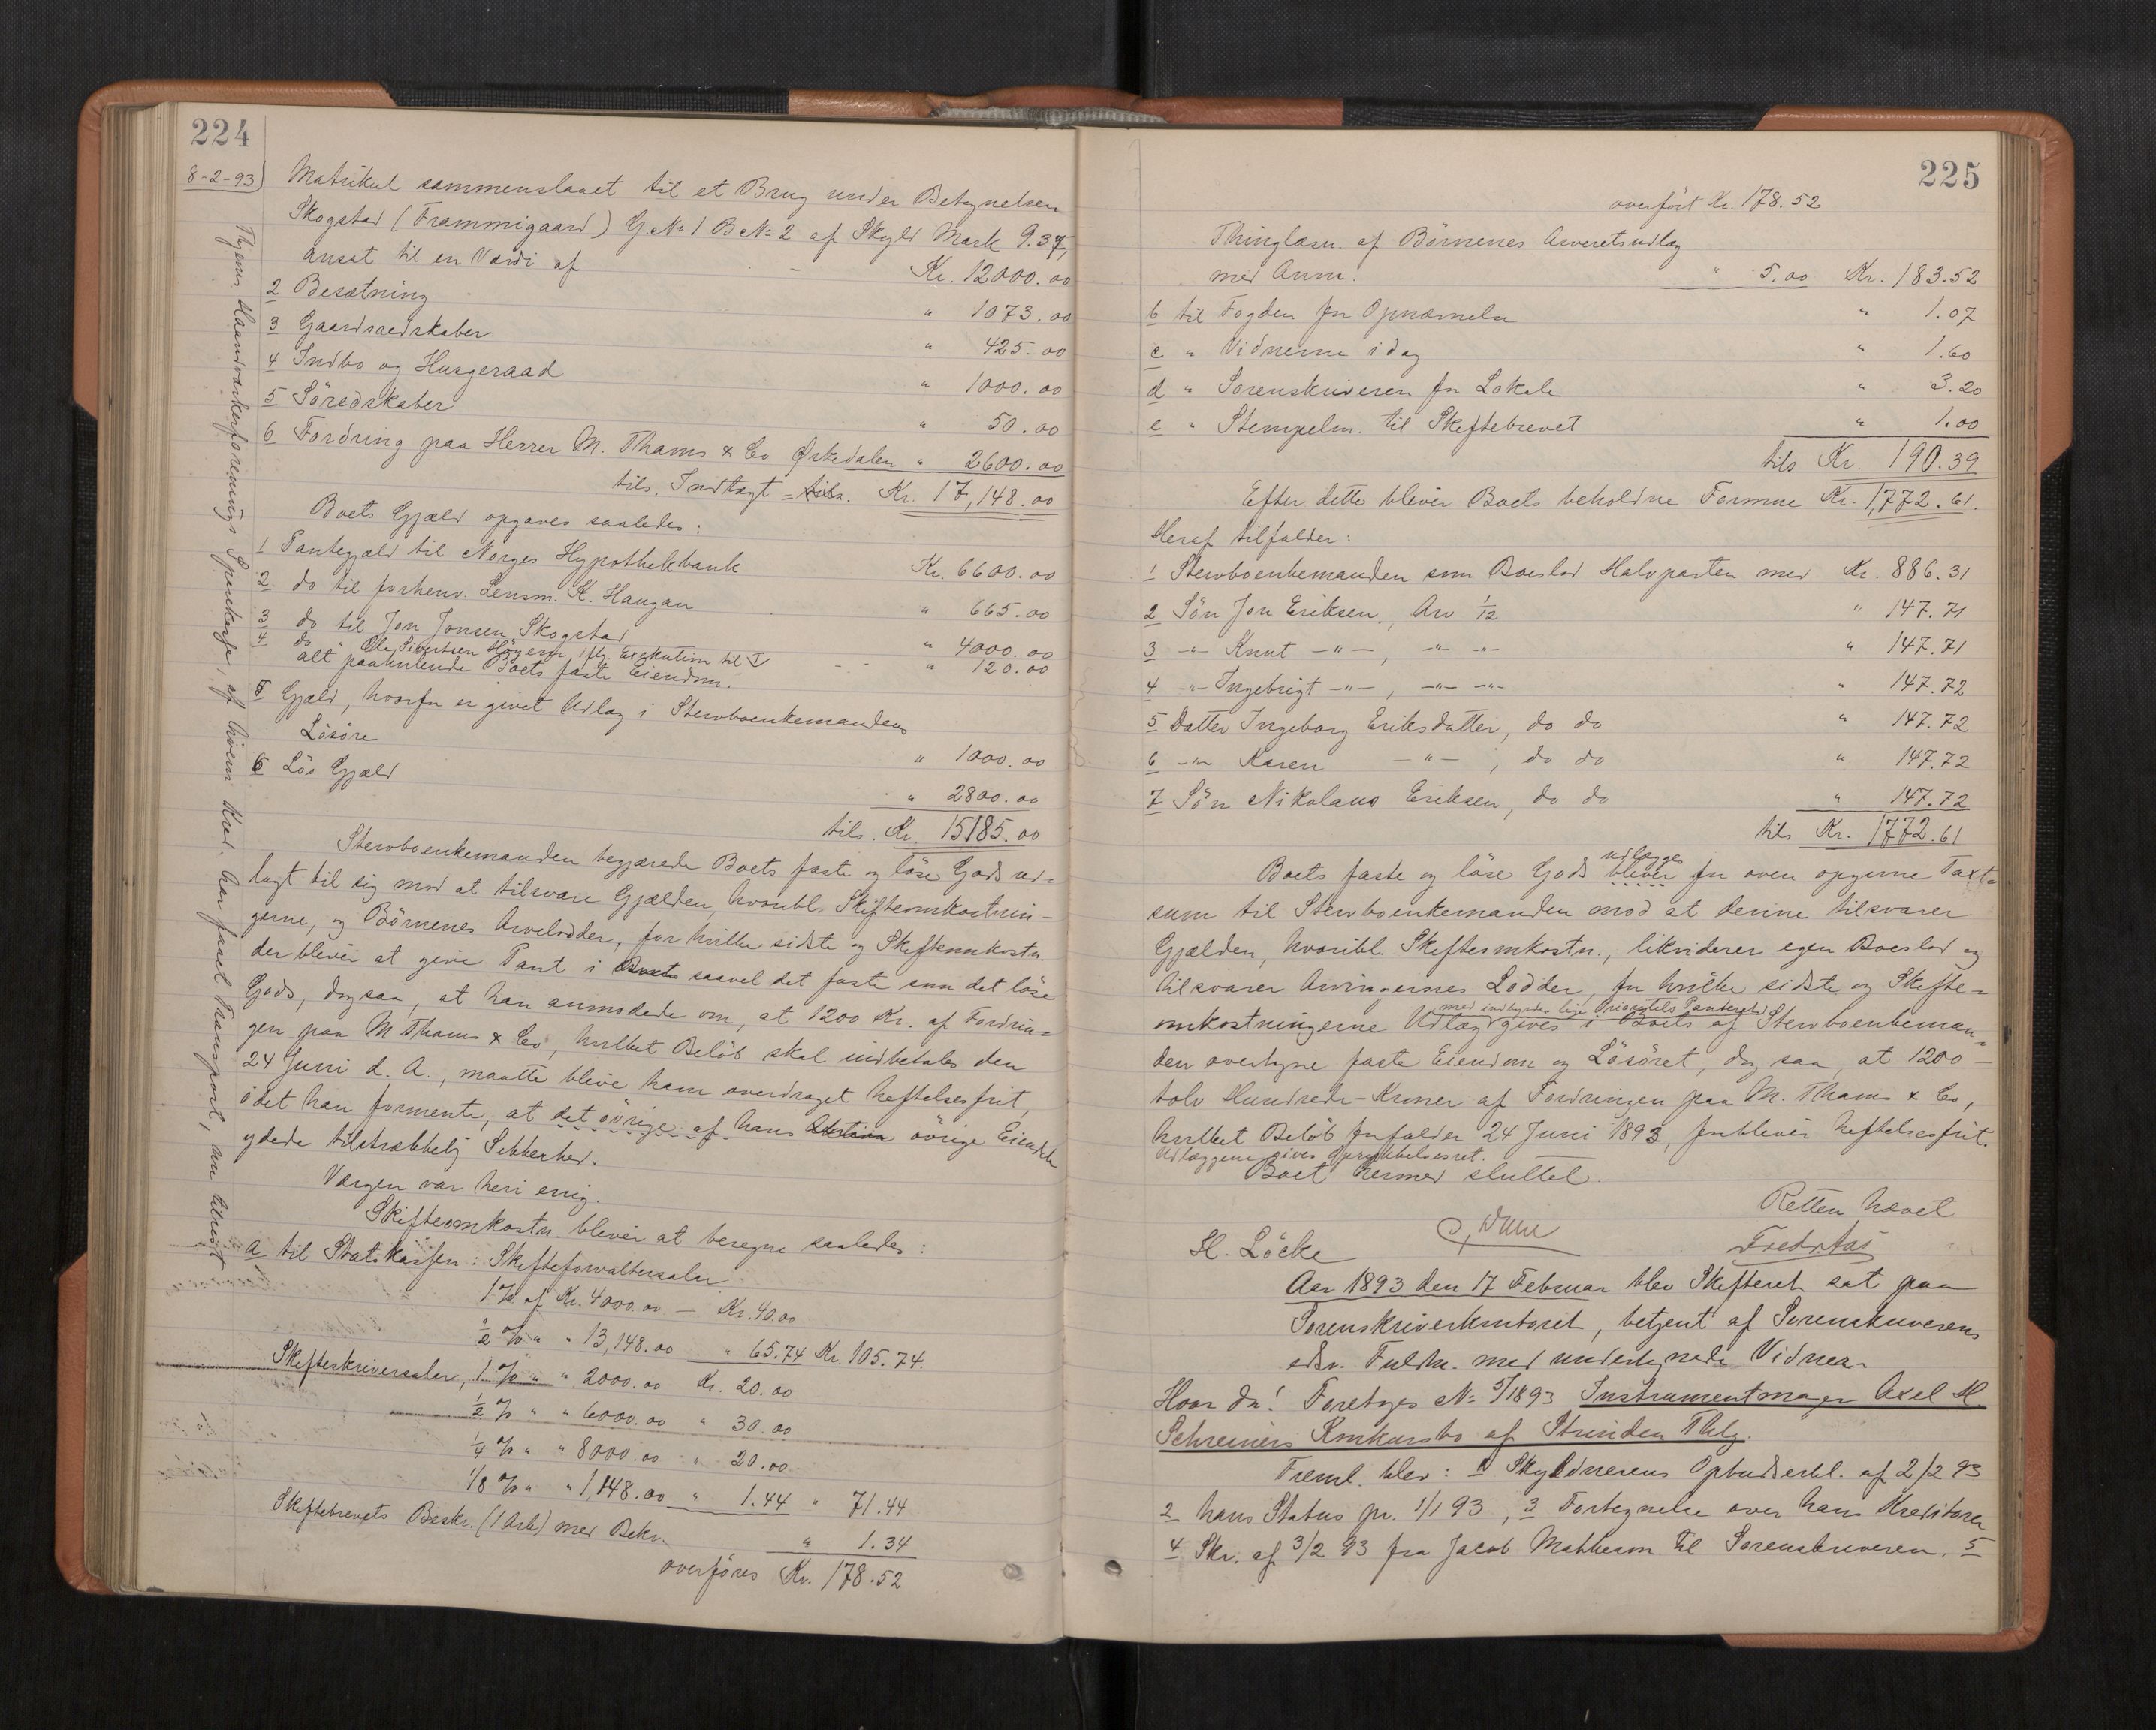 224
8-2-93)
Matrikul sammenslaaet til et Brug under Betegnelsen
Skogstad (Frammigaard) G.No 1 B No 2 af Skyld Mark 9.37,
ansat til en Værdi af Kr. 12000.00
2 Besætning " 1073.00
3 Gaardsredskaber " 425.00
4 Indbo og Husgeraad " 1000.00
5 Söredskaber " 50.00
6 Fordring paa Herrer M. Thams & Co Ørkedalen " 2600.00
tils. Indtægt = tils. Kr. 17,148.00
Boets Gjæld opgaves saaledes:
1 Pantegjæld til Norges Hypothekbank Kr. 6600.00
2 do til forhenv. Lensm. K. Haugan " 665.00
3 do til Jon Jonsen Skogstad " 4000.00
4 do " Ole Sivertsen Höyem iflg. Exekution til " 120.00
alt paahvilende Boets faste Eiendom.
5 Gjæld, hvorfor er givet Udlæg i Stervboenkemandens
Lösöre " 1000.00
6 Lös Gjæld " 2800.00
tils. Kr. 15185.00
Stervboenkemanden begjærede Boets faste og löse Gods ud-
lagt til sig mod at tilsvare Gjælden, hvoribl. Skifteomkostnin-
gerne, og Börnenes Arvelodder, for hvilke sidste og Skifteomkostn.
der bliver at give Pant i Boets saavel det faste som det löse
Gods, dog saa, at han anmodede om, at 1200 Kr. af Fordrin-
gen paa M Thams & Co, hvilket Belöb skal indbetales den
24 Juni d. A., maatte blive ham overdraget heftelsesfrit,
idet han formente, at det övrige af hans övrige Eiendele
ydede tilstrækkelig Sikkerhed.
Værgen var heri enig.
Skifteomkostn. bliver at beregne saaledes:
a til Statskassen: Skifteforvaltersalær
1 % af Kr. 4000.00 — Kr. 40.00
1/2 % " " 13,148.00 " 65.74 Kr. 105.74.
Skifteskriversalær, 1 % " " 2000.00 Kr. 20.00
1/2 % " " 6000.00 " 30.00
1/4 % " " 8000.00 " 20.00
1/8 % " " 1,148.00 " 1.44 " 71.44
Skiftebrevets Beskr. (1 Ark) med Bekr. " 1.34
overföres Kr. 178.52
Sparekasse, af hvem Kred. har faaet Transport, nu
225
overfört Kr. 178.52
Thinglæsn. af Börnenes Arveretsudlæg
med Anm. " 5.00 Kr. 183.52
b til Fogden for Opnævnelse " 1.07
c " Vidnerne idag " 1.60
d " Sorenskriveren for Lokale " 3.20
e " Stempelm. til Skiftebrevet " 1.00
tils Kr. 190.39
Efter dette bliver Boets beholdne Formue Kr. 1,772.61.
Heraf tilfalder:
1 Stervboenkemanden som Boeslod Halvparten med Kr. 886.31
2 Sön Jon Eriksen, Arv 1/12 " 147.71
3 -"- Knut -"-, -"- -"- " 147.71
4 -"- Ingebrigt -"-, -"- -"- " 147.72
5 Datter Ingeborg Eriksdatter, do do " 147.72
6 -"- Karen -"-, do do " 147.72
7 Sön Nikolaus Eriksen, do do " 147.72
tils Kr. 1772.61
udlægges
Boets faste og löse Gods bliver for oven opgivne Taxt-
sum til Stervboenkemanden mod at denne tilsvarer
Gjælden, hvoribl. Skifteomkostn., likviderer egen Boeslod og
tilsvarer Arvingernes Lodder, for hvilke sidste og Skifte-
med indbyrdes lige Prioritets Panteret
omkostningerne Udlæg gives i Boets af Stervboenkeman-
den overtagne faste Eiendom og Lösöret, dog saa, at 1200 —
tolv Hundrede - Kroner af Fordringen paa M. Thams & Co,
hvilket Belöb forfalder 24 Juni 1893, forbliver heftelsesfrit.
Udlæggene gives Oprykkelsesret.
Boet hermed sluttet.
Retten hævet
H. Löcke
Aar 1893 den 17 Februar blev Skifteret sat paa
Sorenskriverkontoret, betjent af Sorenskriverens
edsv. Fuldm. med undertegnede Vidner.
Hvor da: Foretoges No 5/1893 Instrumentmager Axel H.
Schreiners Konkursbo af Strinden Thlg.
Freml. blev: 1 Skyldnerens Opbudserkl. af 2/2 93
2 hans Status pr. 1/1 93, 3 Fortegnelse over hans Kreditorer
4 Skr. af 3/2 93 fra Jacob Matheson til Sorenskriveren. 5